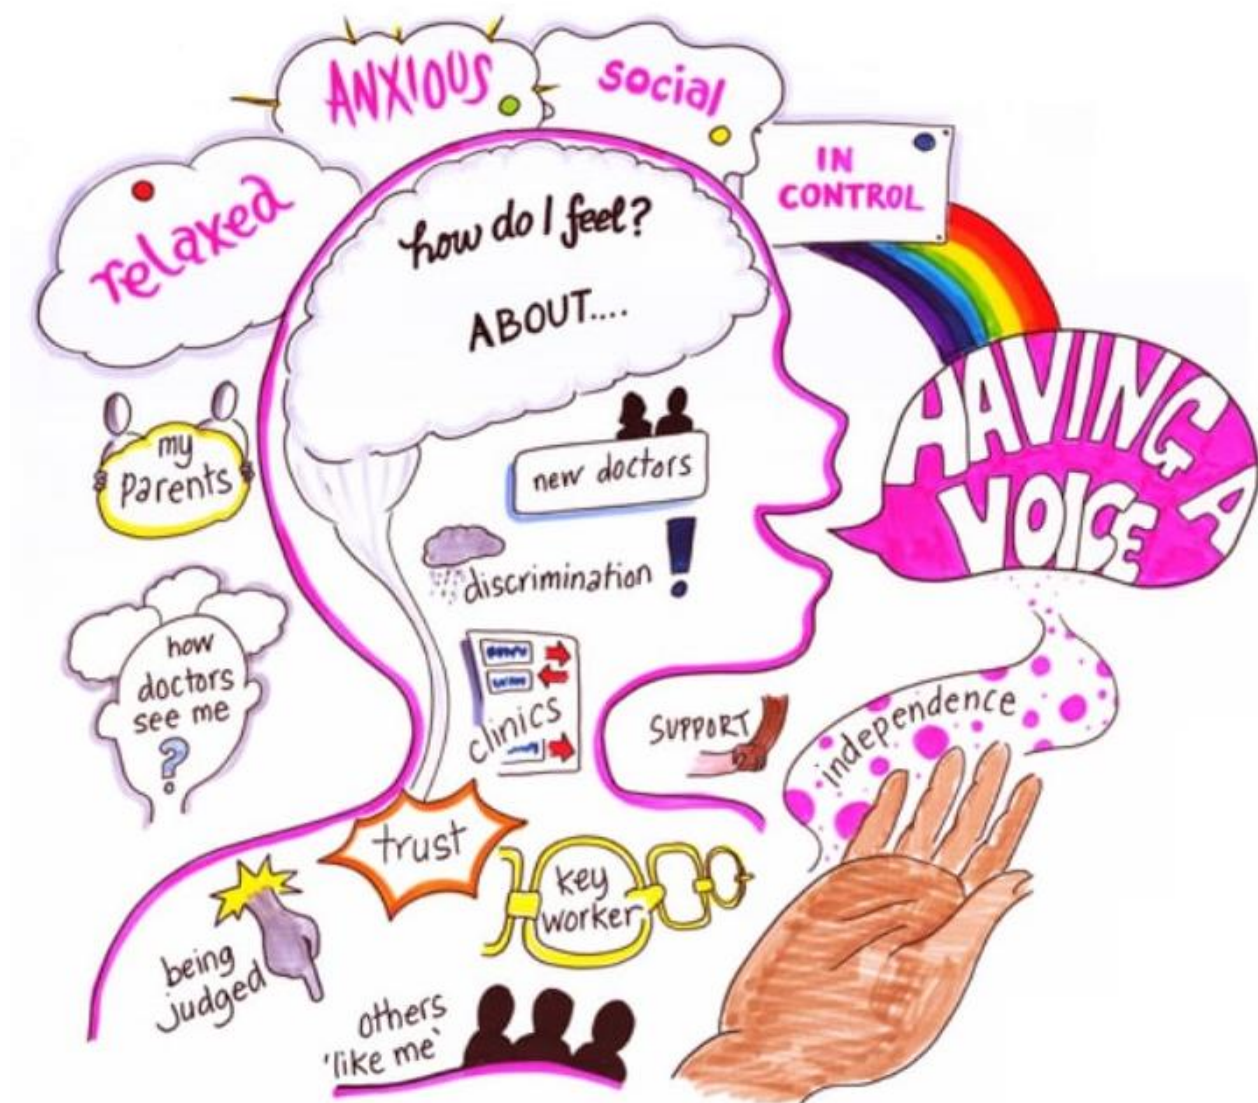 ANXIOUS
social
relaxed
IN
CONTROL
how do I feel?
ABOUT....
HAVING A
VOICE
my
parents
new doctors
discrimination
how
doctors
see me
?
clinics
SUPPORT
independence
trust
key
worker
being
judged
others
'like me'